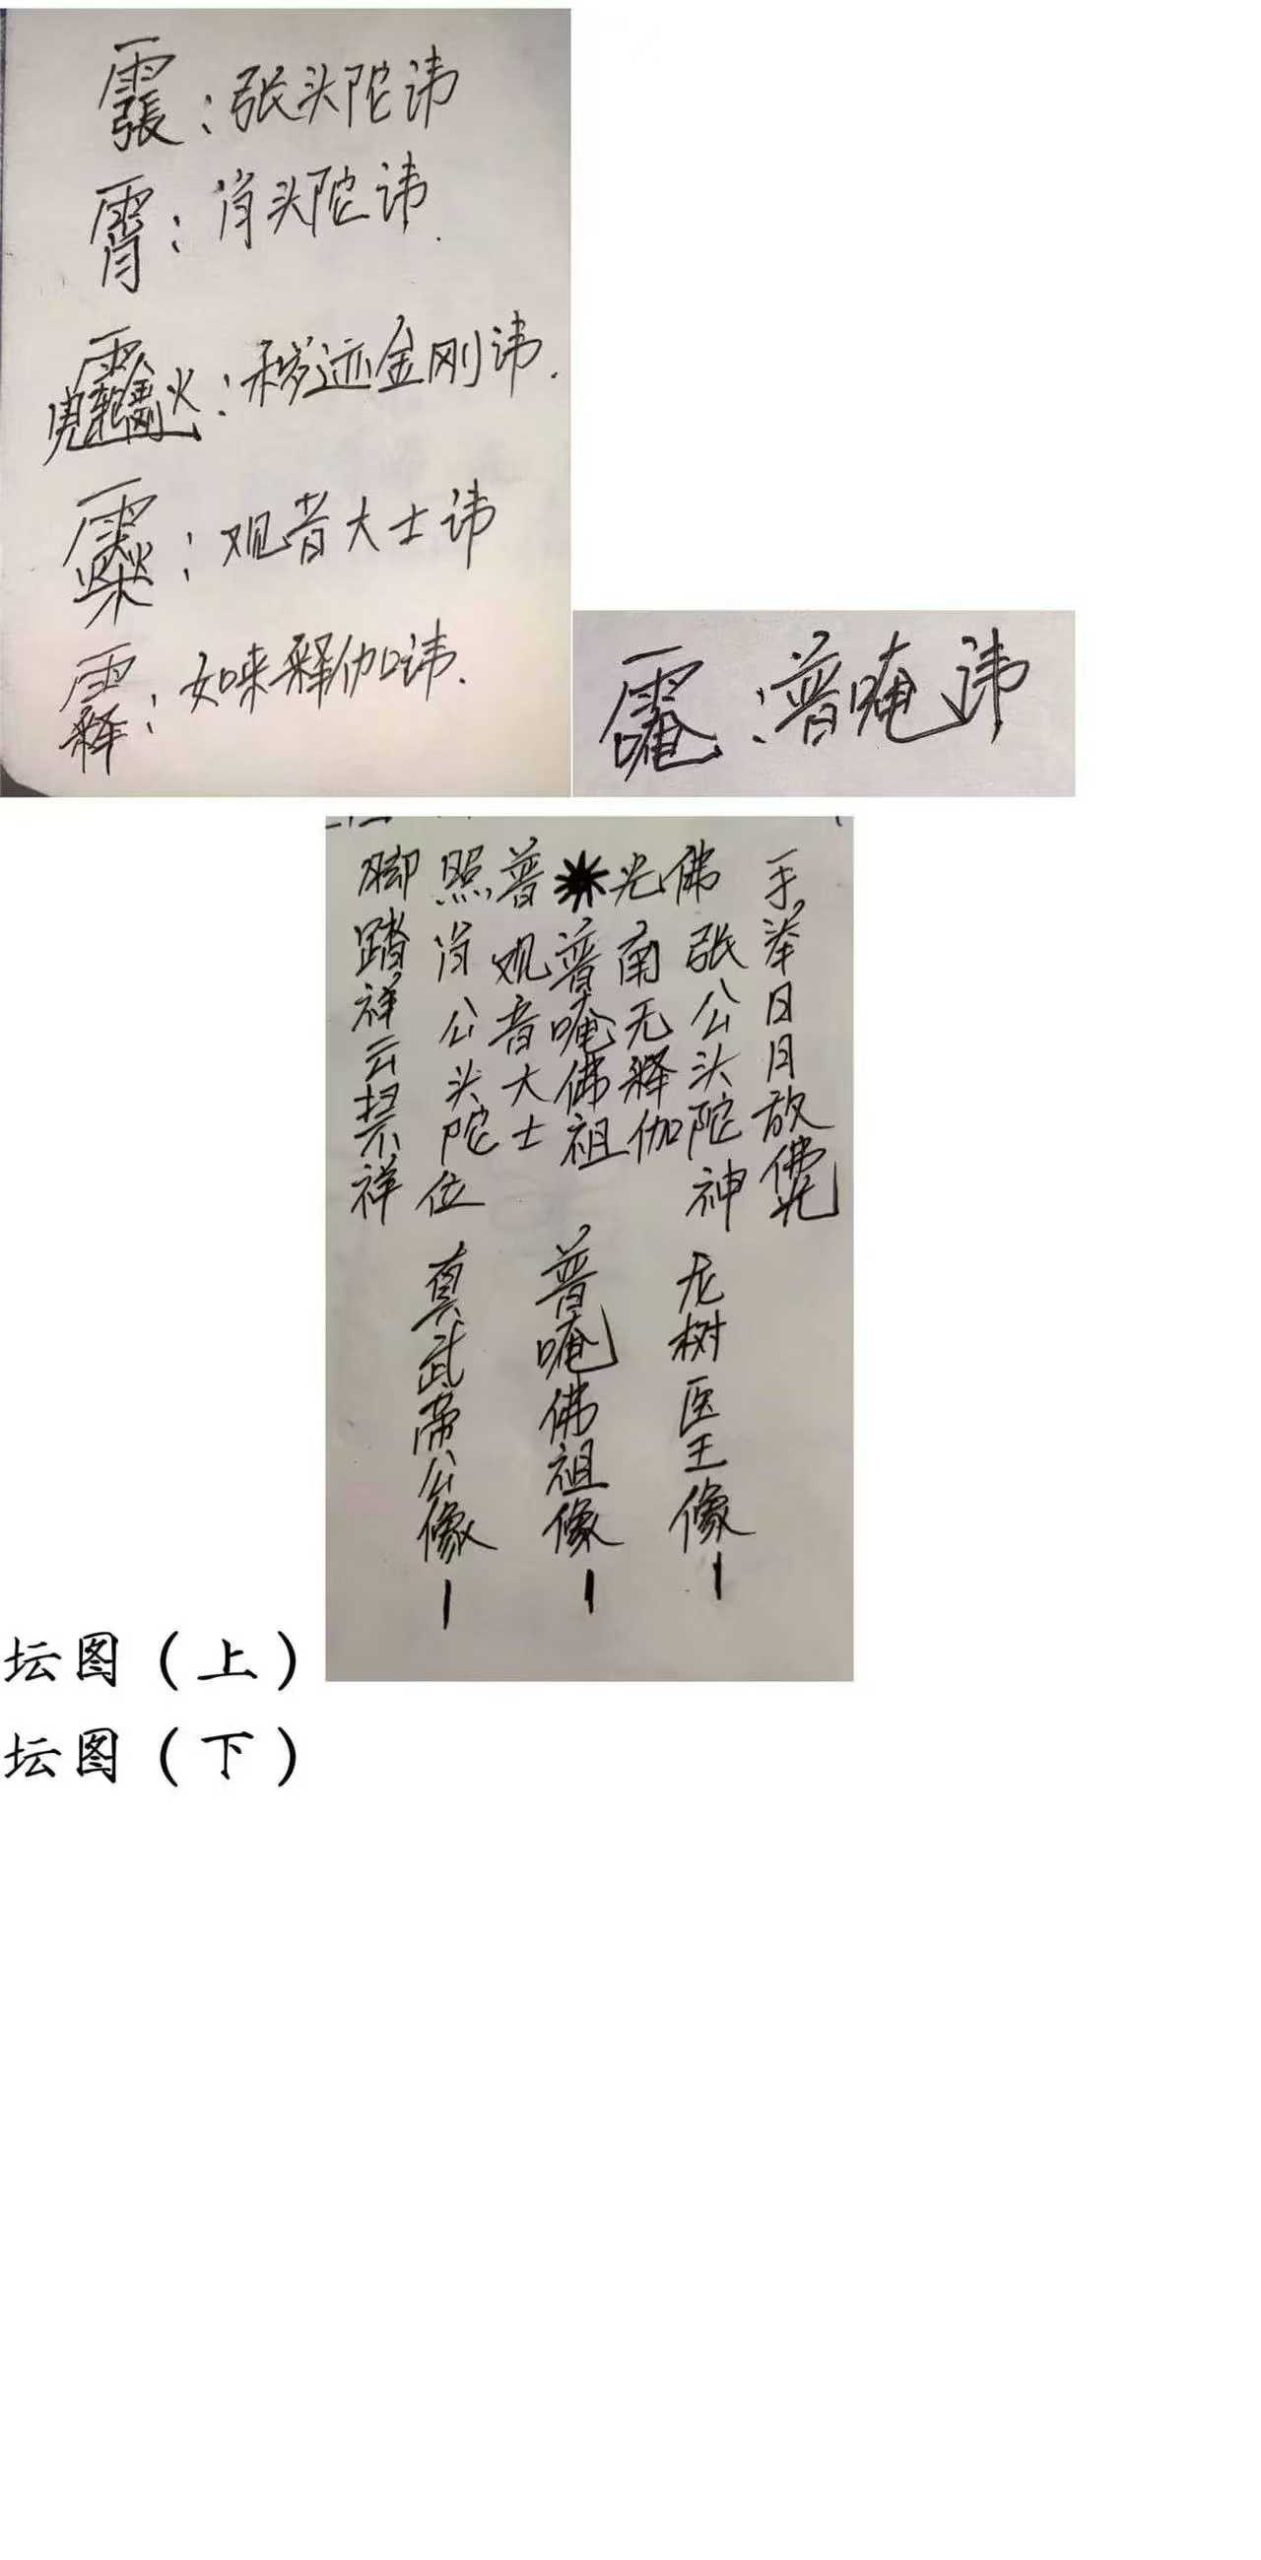 ：张头陀讳
霄：肖头陀讳.
：秽迹金刚讳.
：观音大士讳
：如来释伽讳.
：普唵讳
手举日月放佛光
佛张公头陀神
光南无释伽
普唵佛祖
普观音大士
照肖公头陀位
脚踏祥云禁祥
龙树医王像
普唵佛祖像
真武帝公像
坛图（上）
坛图（下）